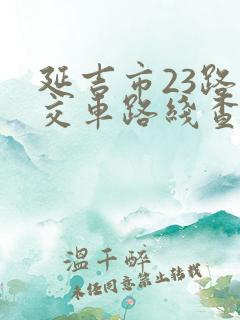 延吉市23路
交车路线查
温千醉
未经同意禁止转载